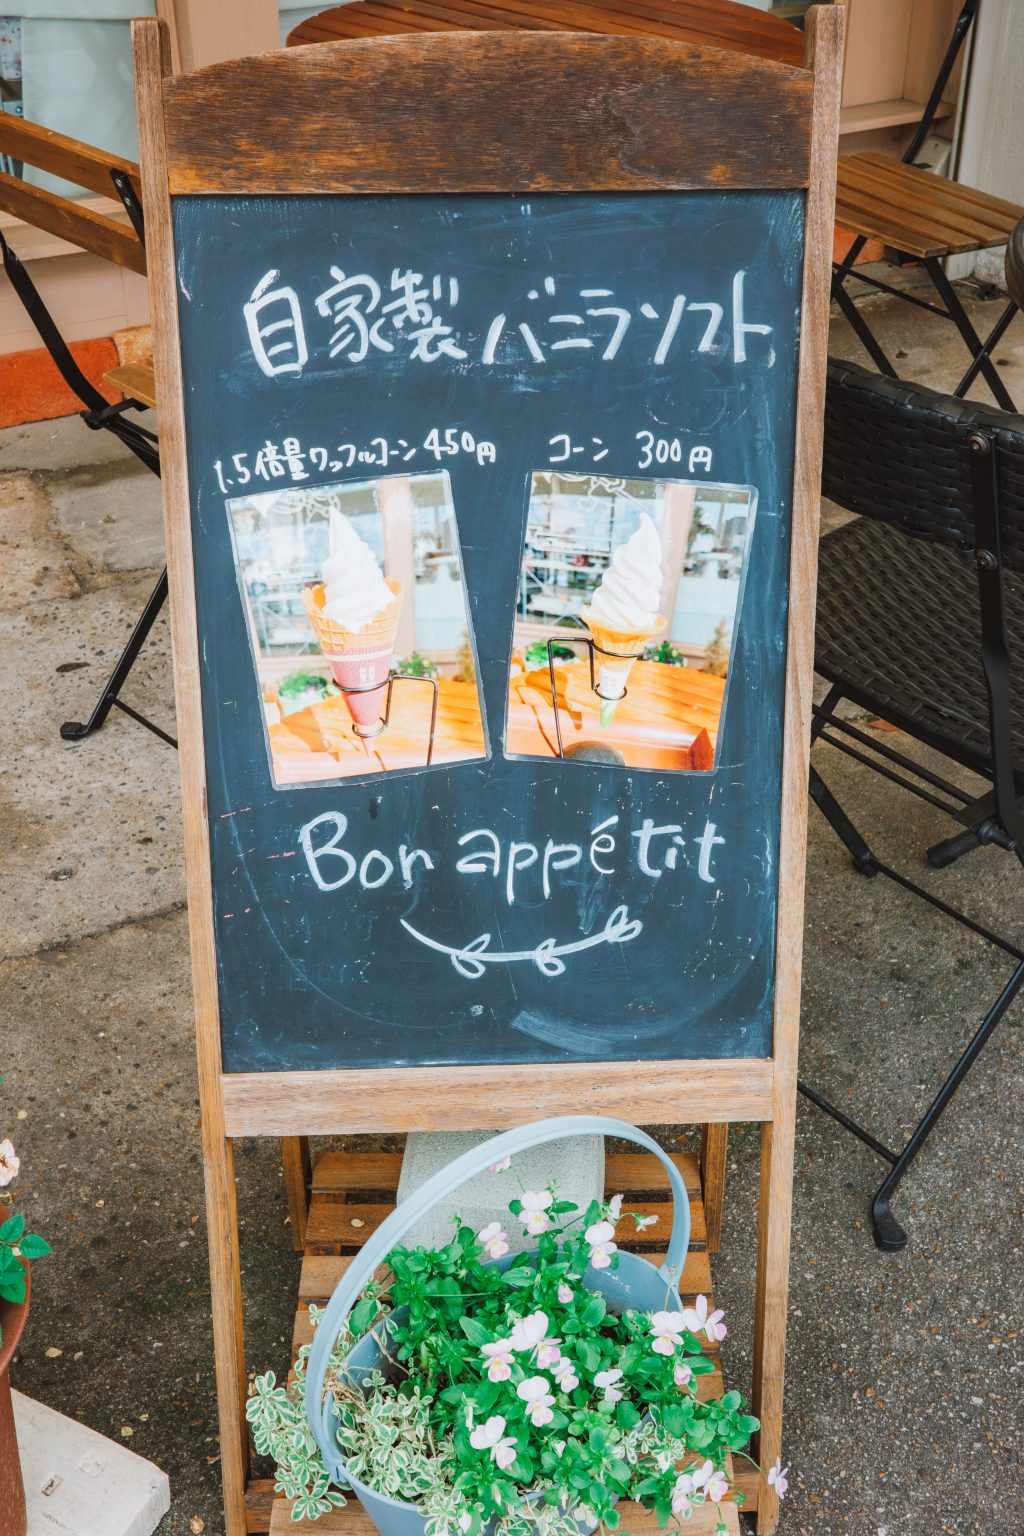 自家製 バニラソフト
1.5倍量ワッフルコーン 450円
コーン 300円
Bon appétit